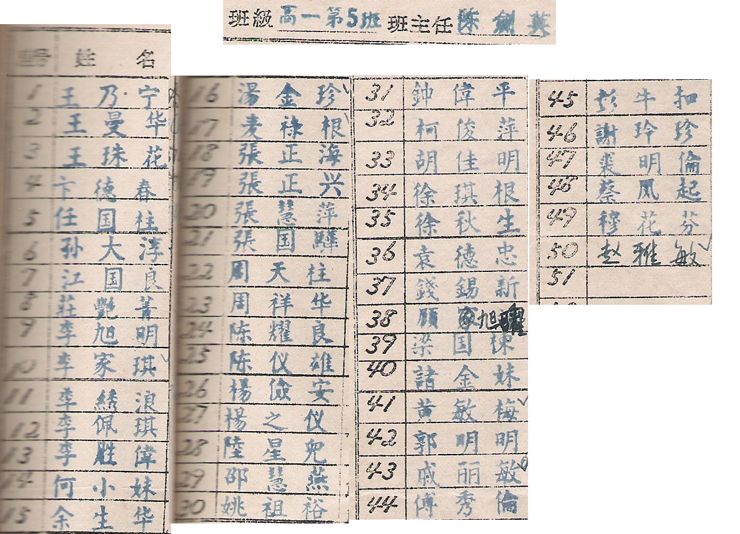 班級 高一第5班 班主任 陈劍英
姓名
1 王乃宁
2 王曼华
3 王珠花
4 卞德春
5 任国柱
6 孙大淳
7 江国良
8 莊艷菁
9 李旭明
10 李家琪
11 李綉浪
12 李佩琪
13 李胜偉
14 何小妹
15 余生华
16 湯金珍
17 麦祿根
18 張正海
19 張正兴
20 張慧萍
21 張国驊
22 周天柱
23 周祥华
24 陈耀良
25 陈仪雄
26 楊儉安
27 楊之仪
28 陸星兒
29 邵慧燕
30 姚祖裕
31 鈡偉平
32 柯俊萍
33 胡佳明
34 徐琪根
35 徐秋生
36 袁德忠
37 錢錫新
38 顧旭耀
39 梁国棟
40 諸金妹
41 黄敏梅
42 郭明明
43 戚丽敏
44 傅秀倫
45 彭牛扣
46 謝玲珍
47 裘明倫
48 蔡風起
49 穆花芬
50 赵雅敏
51